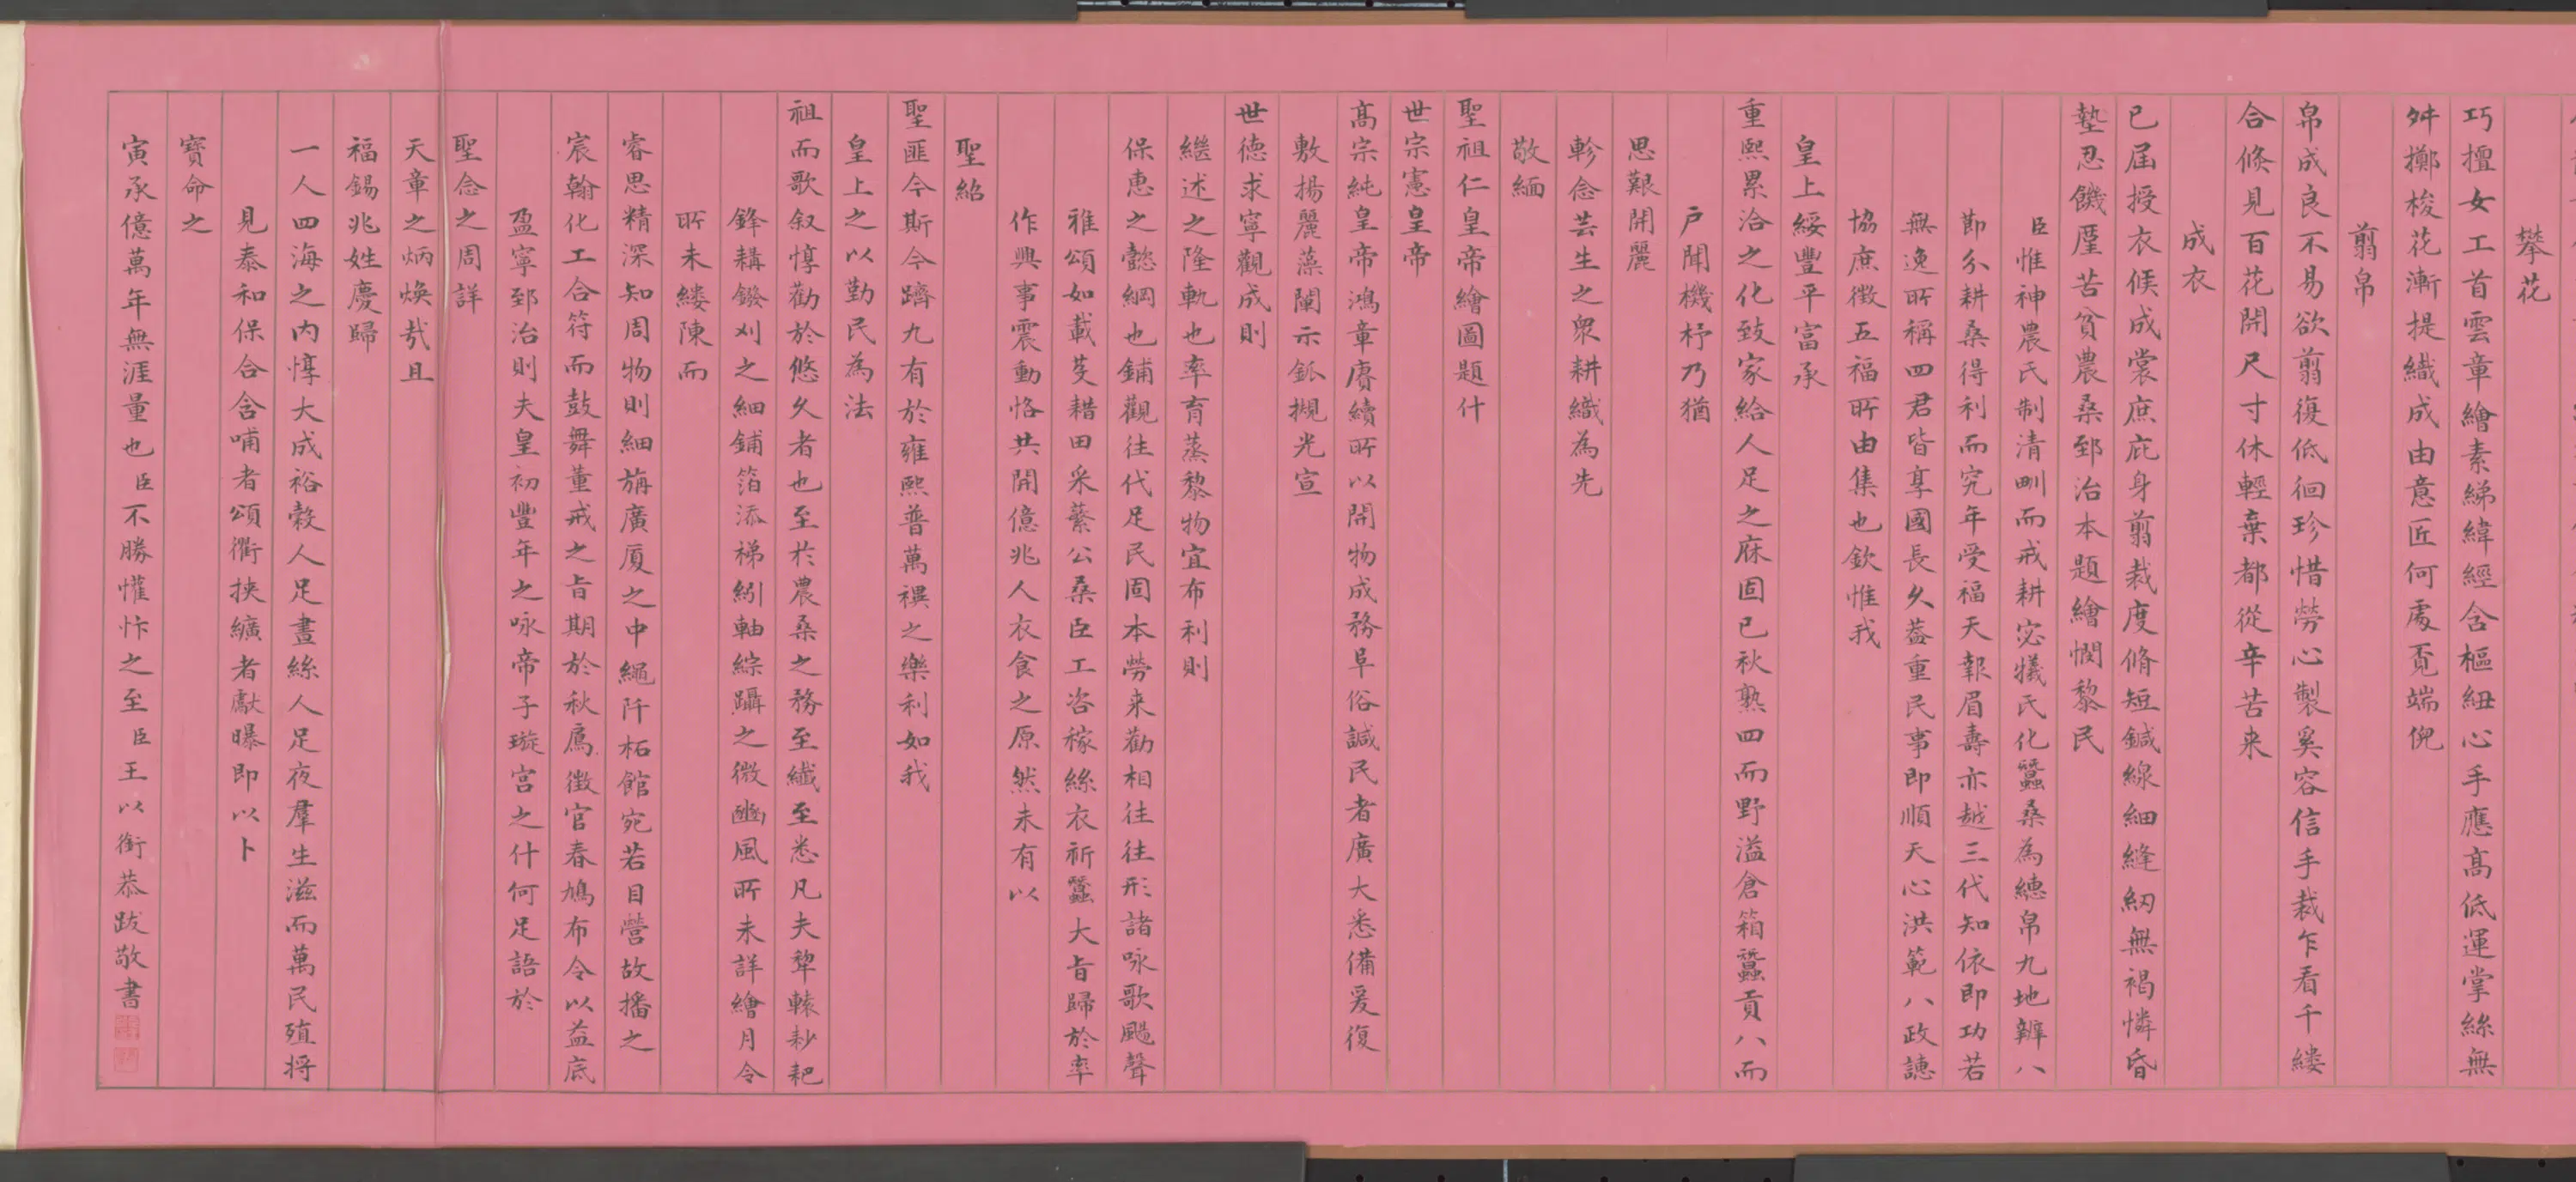 攀花
巧擅女工首雲章繪素綈緯經含樞紐心手應髙低運掌絲無
舛擲梭花漸提織成由意匠何處覓端倪
翦帛
帛成良不易欲翦復低徊珍惜勞心製奚容信手裁乍看千縷
合倐見百花開尺寸休輕棄都從辛苦来
成衣
已届授衣候成裳庶庇身翦裁度脩短鍼線細縫紉無褐憐昏
墊忍饑廑苦貧農桑郅治本題繪憫黎民
臣惟神農氏制清畎而戒耕宓犧氏化蠶桑為繐帛九地辨八
節分耕桑得利而究年受福天報眉壽亦越三代知依即功若
無逸所稱四君皆享國長久葢重民事即順天心洪範八政讔
協庶徵五福所由集也欽惟我
皇上綏豐平富承
重熙累洽之化致家給人足之庥固已秋熟四而野溢倉箱蠶貢八而
戶聞機杼乃猶
思艱開麗
軫念芸生之衆耕織為先
敬緬
聖祖仁皇帝繪圖題什
世宗憲皇帝
髙宗純皇帝鴻章賡續所以開物成務阜俗諴民者廣大悉備爰復
敷揚麗藻闡示鈲槻光宣
世德求寧觀成則
繼述之隆軌也率育蒸黎物宜布利則
保惠之懿綱也鋪觀往代足民固本勞来勸相往往形諸咏歌颺聲
雅頌如載芟耤田采蘩公桑臣工咨稼絲衣祈蠶大旨歸於率
作興事震動恪共開億兆人衣食之原然未有以
聖紹
聖匪今斯今躋九有於雍熙普萬禩之樂利如我
皇上之以勤民為法
祖而歌叙惇勸於悠久者也至於農桑之務至纖至悉凡夫犂轅耖耙
鋒耩鏺刈之細鋪箔添梯紖軸綜躡之微豳風所未詳繪月令
所未縷陳而
睿思精深知周物則細旃廣厦之中繩阡柘館宛若目營故播之
宸翰化工合符而鼓舞董戒之旨期於秋鳸徴官春鳩布令以益底
盈寧郅治則夫皇初豐年之咏帝子璇宫之什何足語於
聖念之周詳
天章之炳煥㢤且
福錫兆姓慶歸
一人四海之内惇大成裕榖人足晝絲人足夜羣生滋而萬民殖将
見泰和保合含哺者頌衢挾纊者獻曝即以卜
寶命之
寅承億萬年無涯量也臣不勝懽忭之至臣王以銜恭跋敬書